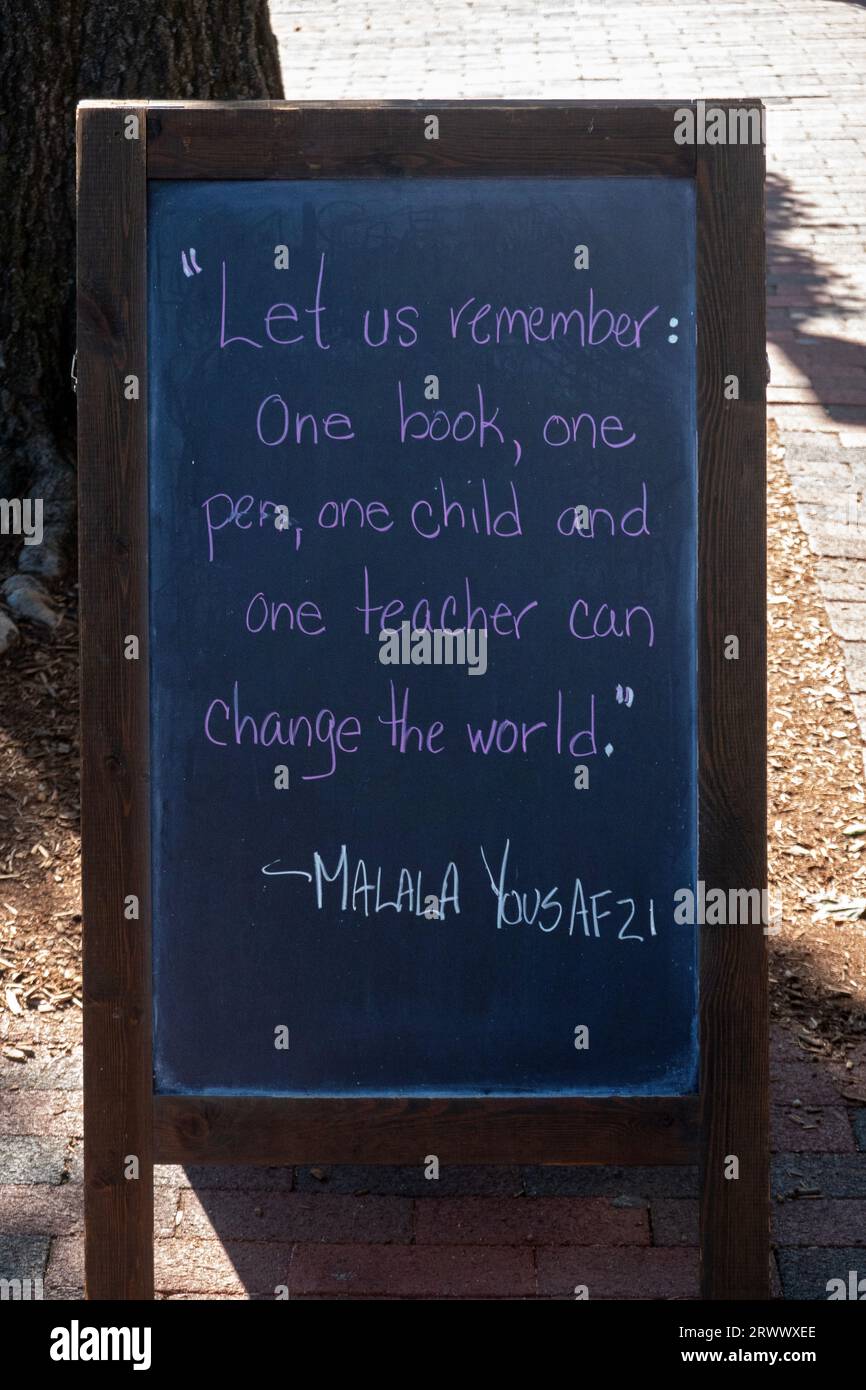 "Let us remember:
One book, one
pen, one child and
one teacher can
change the world."
~MALALA YOUSAFZI
a
alamy
alamy
a alamy
Image ID: 2RWWXEE
www.alamy.com